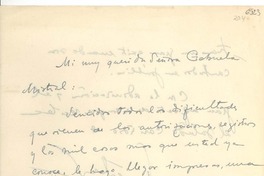 Mi muy querida Señora Gabriela
Mistral:
Vencidas todas las dificultades
que vienen de las autorizaciones, registros
y las mil cosas más que usted ya
conoce, le hago llegar impresas, unas